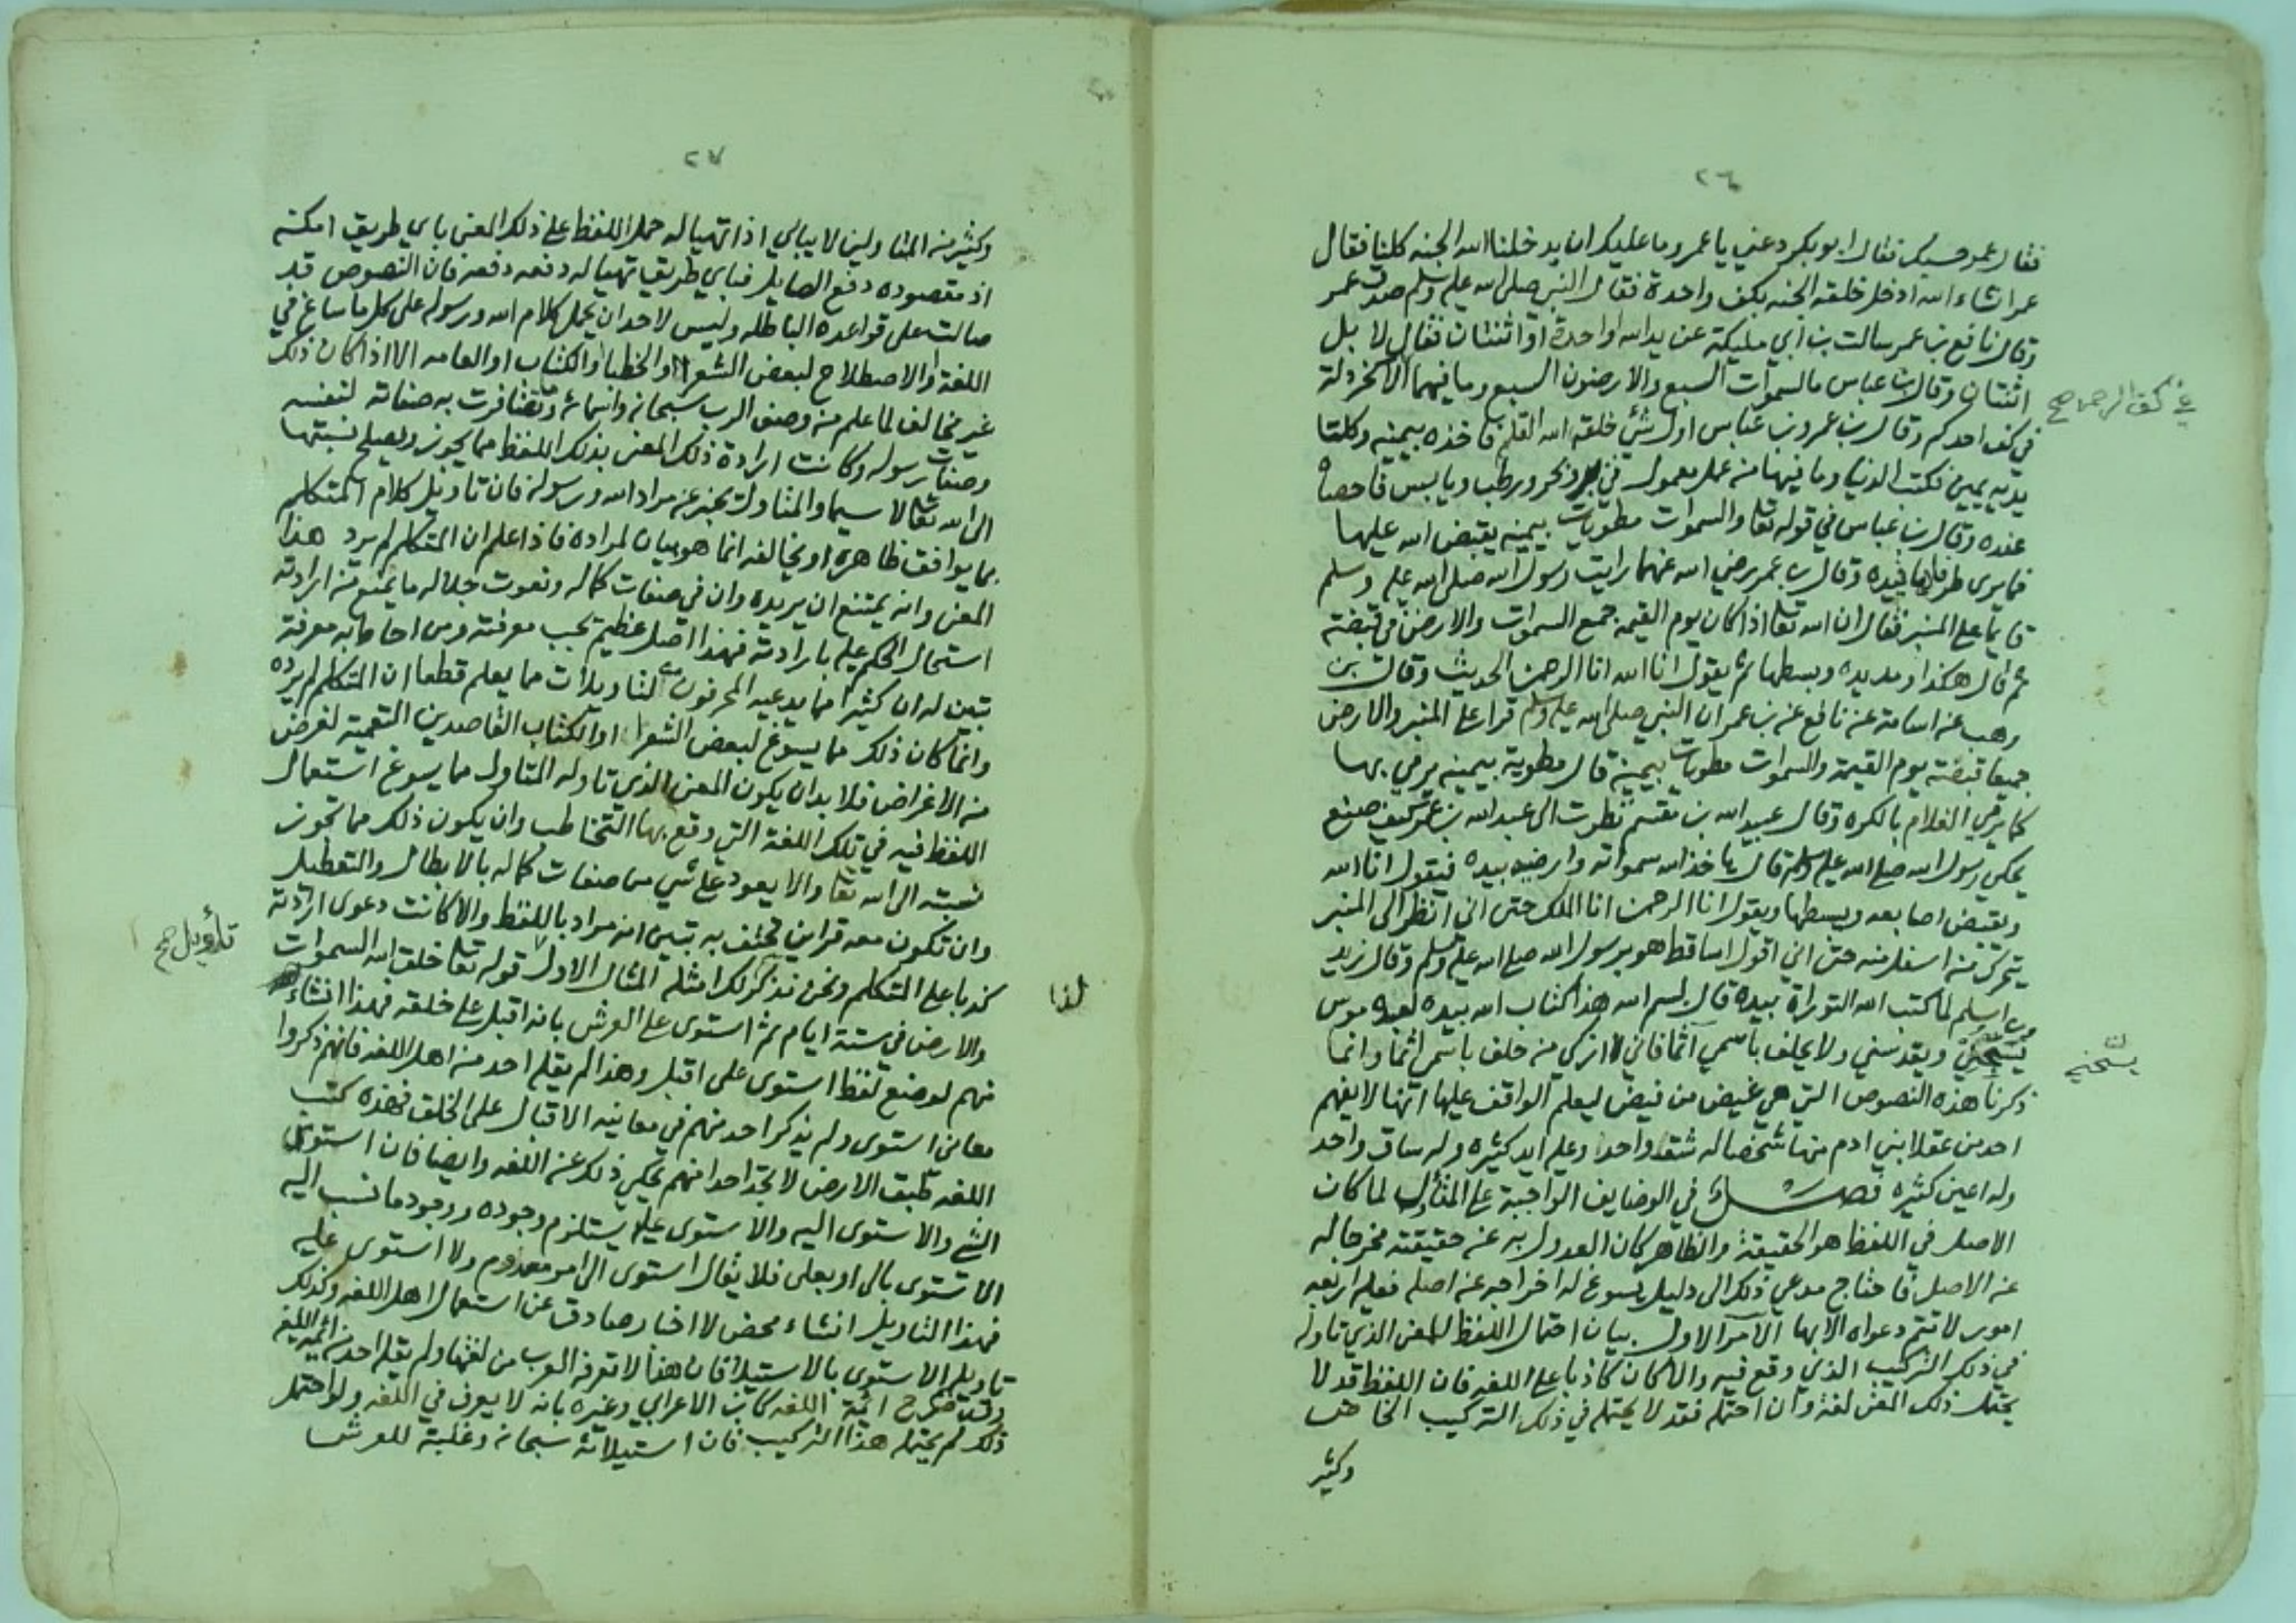 ٢٦
فقال عمر حسبك فقال ابو بكر دعني يا عمر وما عليك ان يدخلنا الله الجنه كلنا فقال
عمر ان شاء الله ادخل خلقه الجنه بكف واحدة فقال النبي صلى الله عليه وسلم صدق عمر
وقال نافع بن عمر سالت بن ابي مليكة عن يد الله اواحدة او اثنتان فقال لا بل
اثنتان وقال بن عباس ما السموات السبع والارضون السبع وما فيهما الا كخردلة
في كف الرحمن صح
في كف احدكم وقال بن عمر وبن عباس اول شئ خلقه الله القلم فاخذه بيمينه وكلتا
يديه يمين فكتب الدنيا وما فيها من عمل معمول في بر وبحر ورطب ويابس فاحصاه
عنده وقال بن عباس في قوله تعا والسموات مطويات بيمينه يقبض الله عليها
فما يرى طرفاها بيده وقال بن عمر رضي الله عنهما رايت رسول الله صلى الله عليه وسلم
قايما على المنبر فقال ان الله تعا اذا كان يوم القيمه جمع السموات والارض في قبضته
ثم قال هكذا ومد يده وبسطها ثم يقول انا الله انا الرحمن الحديث وقال بن
وهب عن اسامة عن نافع عن بن عمر ان النبي صلى الله عليه وسلم قرا على المنبر والارض
جميعا قبضته يوم القيمة والسموات مطويات بيمينه قال مطوية بيمينه يرمي بها
كما يرمي الغلام بالكره وقال عبيد الله بن مقسم نظرت الى عبد الله بن عمر كيف صنع
يحكي رسول الله صلى الله عليه وسلم قال ياخذ الله سمواته وارضيه بيده فيقول انا الله
ويقبض اصابعه ويبسطها ويقول انا الرحمن انا الملك حتى اني انظر الى المنبر
يتحرك من اسفل منه حتى اني اقول اساقط هو برسول الله صلى الله عليه وسلم وقال زيد
بن اسلم لما كتب الله التوراة بيده قال بسم الله هذا كتاب الله بيده لعبده موسى
يسبحني ويقدسني ولا يحلف باسمي اثما فاني لا ازكي من حلف باسمي اثما وانما
يسبحني
ذكرنا هذه النصوص التي هي غيض من فيض ليعلم الواقف عليها انها لا يفهم
احد من عقلا بني ادم منها شخصا له شق واحد وعليه ايد كثيره وله ساق واحد
وله اعين كثيره فصل في الوضايف الواجبة على المتأول لما كان
الاصل في اللفظ هو الحقيقة والظاهر كان العدول به عن حقيقته مخرجا له
عن الاصل فاحتاج مدعي ذلك الى دليل يسوغ له اخراجه عن اصله فعليه اربعه
امور لا تتم دعواه الا بها الامر الاول بيان احتمال اللفظ للمعنى الذي تاوله
في ذلك التركيب الذي وقع فيه والا كان كاذبا على اللغه فان اللفظ قد لا
يحتمل ذلك المعنى لغة وان احتمله فقد لا يحتمله في ذلك التركيب الخاص
وكثير
٢٧
وكثير من المتاولين لا يبالي اذا تهيا له حمل اللفظ على ذلك المعنى باي طريق امكنه
اذ مقصوده دفع الصايل فباي طريق تهيا له دفعه دفعه فان النصوص قد
صالت على قواعده الباطله وليس لاحد ان يحمل كلام الله ورسوله على كل ما ساغ في
اللغة والاصطلاح لبعض الشعرا او الخطبا والكتاب او العامه الا اذا كان ذلك
غير مخالف لما علم من وصف الرب سبحانه واسمائه وما تضافرت به صفاته لنفسه
وصفات رسوله وكانت ارادة ذلك المعنى بذلك اللفظ مما يجوز ويصلح نسبتها
الى الله تعا لا سيما والمتاول يخبر عن مراد الله ورسوله فان تاويل كلام المتكلم
بما يوافق ظاهره او يخالفه انما هو بيان لمراده فاذا علم ان المتكلم لم يرد هذا
المعنى وانه يمتنع ان يريده وان في صفات كماله ونعوت جلاله ما يمنع من ارادته
استحال الحكم عليه بارادته فهذا اصل عظيم يجب معرفته ومن احاط به معرفة
تبين له ان كثيرا مما يدعيه المحرفون من التاويلات مما يعلم قطعا ان المتكلم لم يرده
وانما كان ذلك مما يسوغ لبعض الشعرا او الكتاب القاصدين التعمية لغرض
من الاغراض فلا بد ان يكون المعنى الذي تاوله المتاول مما يسوغ استعمال
اللفظ فيه في تلك اللغة التي وقع بها التخاطب وان يكون ذلك مما تجوز
نسبته الى الله تعا والا يعود على شي من صفات كماله بالابطال والتعطيل
وان تكون معه قراين تحتف به تبين انه مراد باللفظ والا كانت دعوى ارادته
كذبا على المتكلم ونحن نذكر لك امثله المثال الاول قوله تعا خلق الله السموات
تأويل صح
والارض في ستة ايام ثم استوى على العرش بانه اقبل على خلقه فهذا انشاء
لفا
منهم لوضع لفظ استوى على اقبل وهذا لم يقله احد من اهل اللغه فانهم ذكروا
معاني استوى ولم يذكر احد منهم في معانيه الاقبال على الخلق فهذه كتب
اللغه طبق الارض لا تجد احدا منهم يحكي ذلك عن اللغه وايضا فان استوى
الشئ والاستوى اليه والاستوى عليه يستلزم وجوده ووجود ما نسب اليه
الاستوى بالى او بعلى فلا يقال استوى الى امر معدوم ولا استوى عليه
فهذا التاويل انشاء محض لا اخبار صادق عن استعمال اهل اللغه وكذلك
تاويل الاستوى بالاستيلا فان هذا لا تعرفه العرب من لغتها ولم يقله احد من ائمة اللغه
وقد صرح ائمة اللغه كابن الاعرابي وغيره بانه لا يعرف في اللغه ولو احتمل
ذلك لم يحتمله هذا التركيب فان استيلائه سبحانه وغلبته للعرش